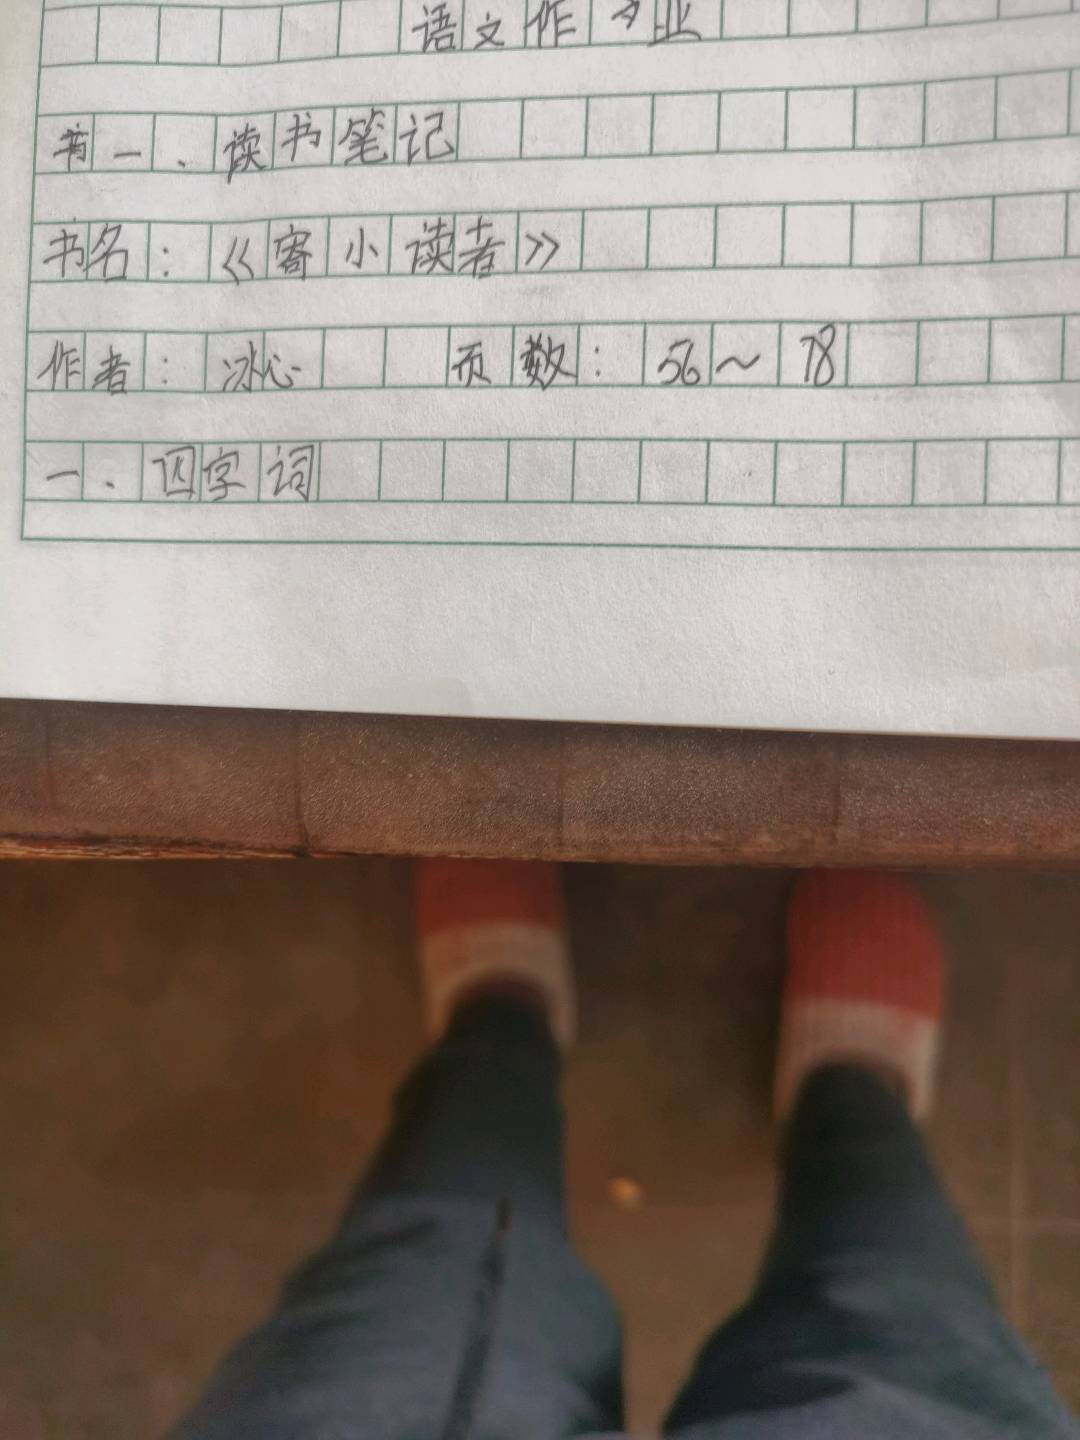 语文作业
一.读书笔记
书名:《寄小读者》
作者:冰心 页数:56~78
一.四字词